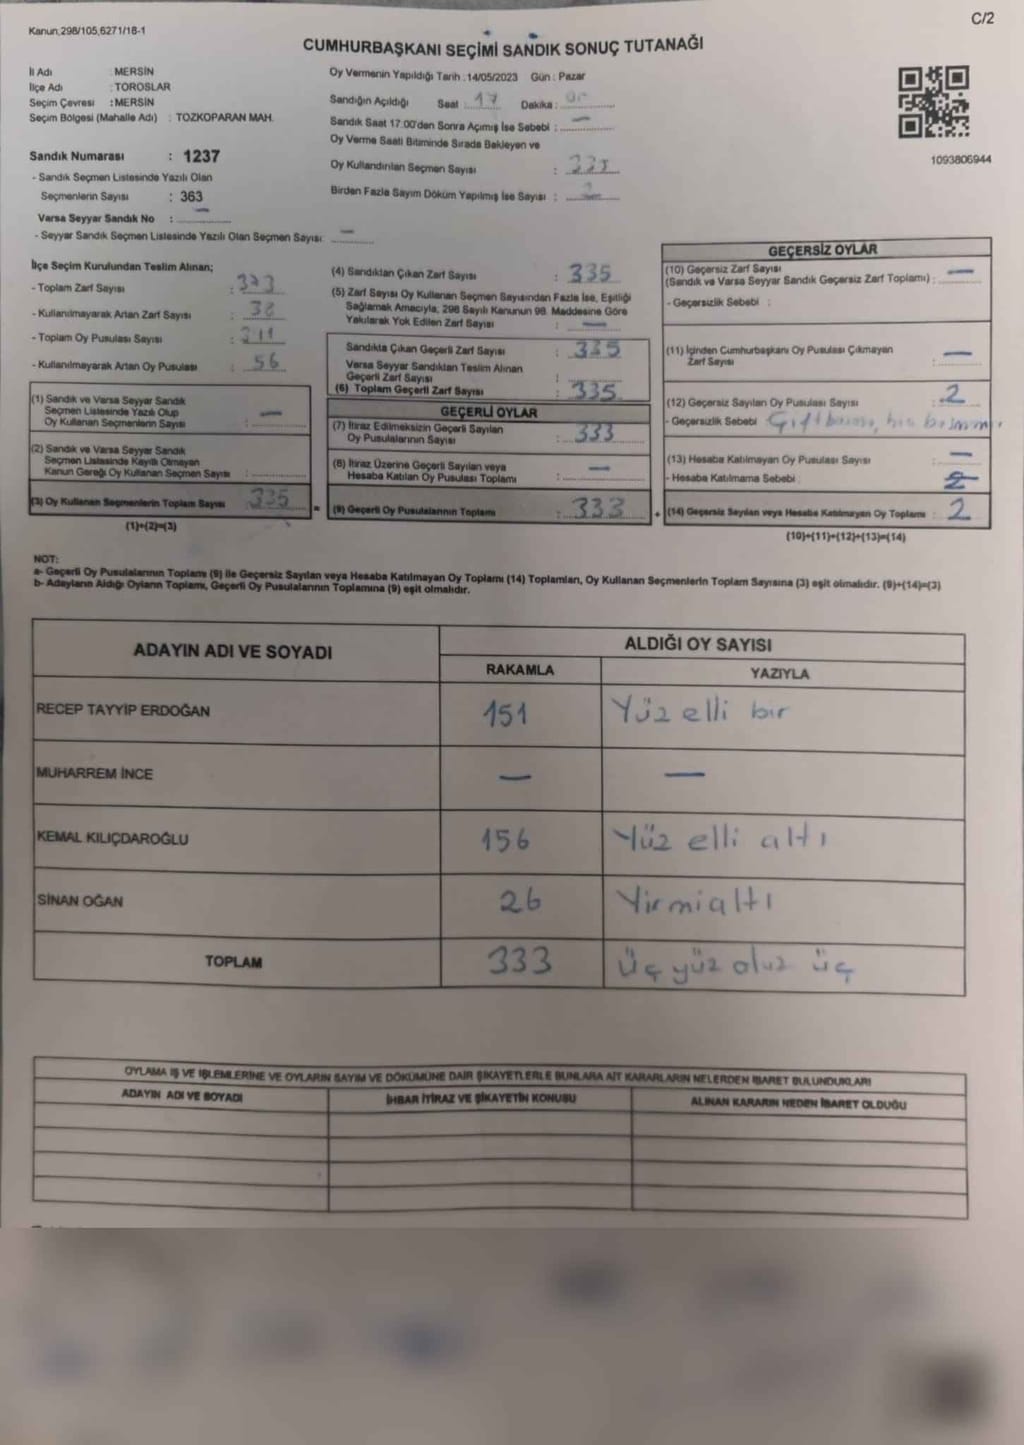 Kanun,298/105,6271/18-1
C/2
CUMHURBAŞKANI SEÇİMİ SANDIK SONUÇ TUTANAĞI
İl Adı : MERSİN
İlçe Adı : TOROSLAR
Seçim Çevresi : MERSİN
Seçim Bölgesi (Mahalle Adı) : TOZKOPARAN MAH.
Sandık Numarası : 1237
- Sandık Seçmen Listesinde Yazılı Olan
Seçmenlerin Sayısı : 363
Varsa Seyyar Sandık No : —
- Seyyar Sandık Seçmen Listesinde Yazılı Olan Seçmen Sayısı: —
Oy Vermenin Yapıldığı Tarih :14/05/2023 Gün : Pazar
Sandığın Açıldığı Saat : 17 Dakika :
Sandık Saat 17:00'den Sonra Açımış İse Sebebi : —
Oy Verme Saati Bitiminde Sırada Bekleyen ve
Oy Kullandırılan Seçmen Sayısı :
Birden Fazla Sayım Döküm Yapılmış İse Sayısı :
1093806944
İlçe Seçim Kurulundan Teslim Alınan;
- Toplam Zarf Sayısı :
- Kullanılmayarak Artan Zarf Sayısı : 38
- Toplam Oy Pusulası Sayısı :
- Kullanılmayarak Artan Oy Pusulası : 56
(1) Sandık ve Varsa Seyyar Sandık
Seçmen Listesinde Yazılı Olup
Oy Kullanan Seçmenlerin Sayısı : —
(2) Sandık ve Varsa Seyyar Sandık
Seçmen Listesinde Kayıtlı Olmayan
Kanun Gereği Oy Kullanan Seçmen Sayısı :
(3) Oy Kullanan Seçmenlerin Toplam Sayısı 335
(1)+(2)=(3)
(4) Sandıktan Çıkan Zarf Sayısı : 335
(5) Zarf Sayısı Oy Kullanan Seçmen Sayısından Fazla İse, Eşitliği
Sağlamak Amacıyla, 298 Sayılı Kanunun 98. Maddesine Göre
Yakılarak Yok Edilen Zarf Sayısı : —
Sandıkta Çıkan Geçerli Zarf Sayısı : 335
Varsa Seyyar Sandıktan Teslim Alınan
Geçerli Zarf Sayısı :
(6) Toplam Geçerli Zarf Sayısı : 335
GEÇERLİ OYLAR
(7) İtiraz Edilmeksizin Geçerli Sayılan
Oy Pusulalarının Sayısı : 333
(8) İtiraz Üzerine Geçerli Sayılan veya
Hesaba Katılan Oy Pusulası Toplamı : —
= (9) Geçerli Oy Pusulalarının Toplamı : 333
GEÇERSİZ OYLAR
(10) Geçersiz Zarf Sayısı
(Sandık ve Varsa Seyyar Sandık Geçersiz Zarf Toplamı) : —
- Geçersizlik Sebebi :
(11) İçinden Cumhurbaşkanı Oy Pusulası Çıkmayan
Zarf Sayısı : —
(12) Geçersiz Sayılan Oy Pusulası Sayısı : 2
- Geçersizlik Sebebi
(13) Hesaba Katılmayan Oy Pusulası Sayısı : —
- Hesaba Katılmama Sebebi :
+ (14) Geçersiz Sayılan veya Hesaba Katılmayan Oy Toplamı : 2
(10)+(11)+(12)+(13)=(14)
NOT:
a- Geçerli Oy Pusulalarının Toplamı (9) ile Geçersiz Sayılan veya Hesaba Katılmayan Oy Toplamı (14) Toplamları, Oy Kullanan Seçmenlerin Toplam Sayısına (3) eşit olmalıdır. (9)+(14)=(3)
b- Adayların Aldığı Oyların Toplamı, Geçerli Oy Pusulalarının Toplamına (9) eşit olmalıdır.
ADAYIN ADI VE SOYADI
ALDIĞI OY SAYISI
RAKAMLA YAZIYLA
RECEP TAYYİP ERDOĞAN 151 Yüz elli bir
MUHARREM İNCE — —
KEMAL KILIÇDAROĞLU 156 Yüz elli altı
SİNAN OĞAN 26 Yirmialtı
TOPLAM 333 Üç yüz otuz üç
OYLAMA İŞ VE İŞLEMLERİNE VE OYLARIN SAYIM VE DÖKÜMÜNE DAİR ŞİKAYETLERLE BUNLARA AİT KARARLARIN NELERDEN İBARET BULUNDUKLARI
ADAYIN ADI VE SOYADI İHBAR İTİRAZ VE ŞİKAYETİN KONUSU ALINAN KARARIN NEDEN İBARET OLDUĞU